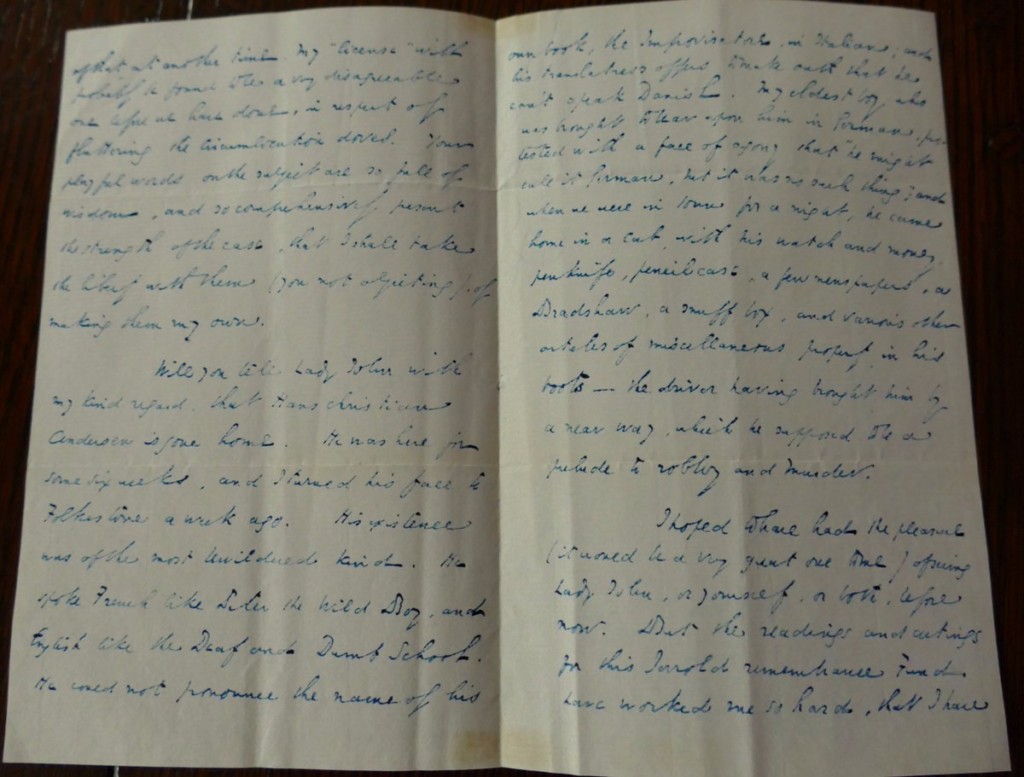 of that at another time. My "license" will
probably be found to be a very disagreeable
one before we have done, in respect of
fluttering the Circumlocution doves. Your
playful words on the subject are so full of
wisdom, and so comprehensively present
the strength of the case, that I shall take
the liberty with them (you not objecting) of
making them my own.
Will you tell Lady John with
my kind regard, that Hans Christian
Andersen is gone home. He was here for
some six weeks, and I turned his face to
Folkestone a week ago. His existence
was of the most bewildered kind. He
spoke French like Peter the Wild Boy, and
English like the Deaf and Dumb School.
He could not pronounce the name of his
own book, the Improvisatore, in Italian; and
his translatress offers to make oath that he
can't speak Danish. My eldest boy who
was brought to bear upon him in German, pro-
tested with a face of agony that "he might
call it German, but it was no such thing"; and
when we were in town for a night, he came
home in a cab, with his watch and money,
penknife, pencil case, a few newspapers, a
Bradshaw, a snuff box, and various other
articles of miscellaneous property in his
boots — the driver having brought him by
a near way, which he supposed to be a
prelude to robbery and murder.
I hoped to have had the pleasure
(it would be a very great one to me) of seeing
Lady John, or yourself, or both, before
now. But the readings and actings
for this Jerrold remembrance Fund
have worked me so hard, that I have